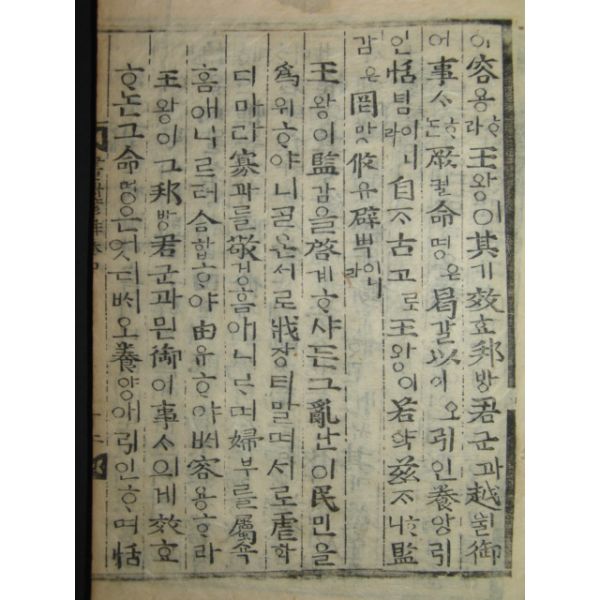 이容용ᄒᆞ라王왕이其기效효邦방君군과越월御
어事ᄉᆞᄒᆞᄃᆞᆫ厥궐命명은曷갈以이오引인養양引
인恬념이니라自ᄌᆞ古고로王왕이若약玆ᄌᆞᄒᆞ니監
감은罔망攸유辟벽이니라
王왕이監감을啓계ᄒᆞ샤ᄃᆞᆫ그亂난이民민을
爲위ᄒᆞ야니ᄀᆞᆯ온서로戕장티말며서로虐학
디마라寡과를敬경홈애니르며婦부를屬쇽
홈애니르러合합ᄒᆞ야由유ᄒᆞ야ᄡᅥ容용ᄒᆞ라
王왕이그邦방君군과믿御어事ᄉᆞ의게效효
ᄒᆞ논그命명은엇디ᄡᅥ오養양애引인ᄒᆞ며恬